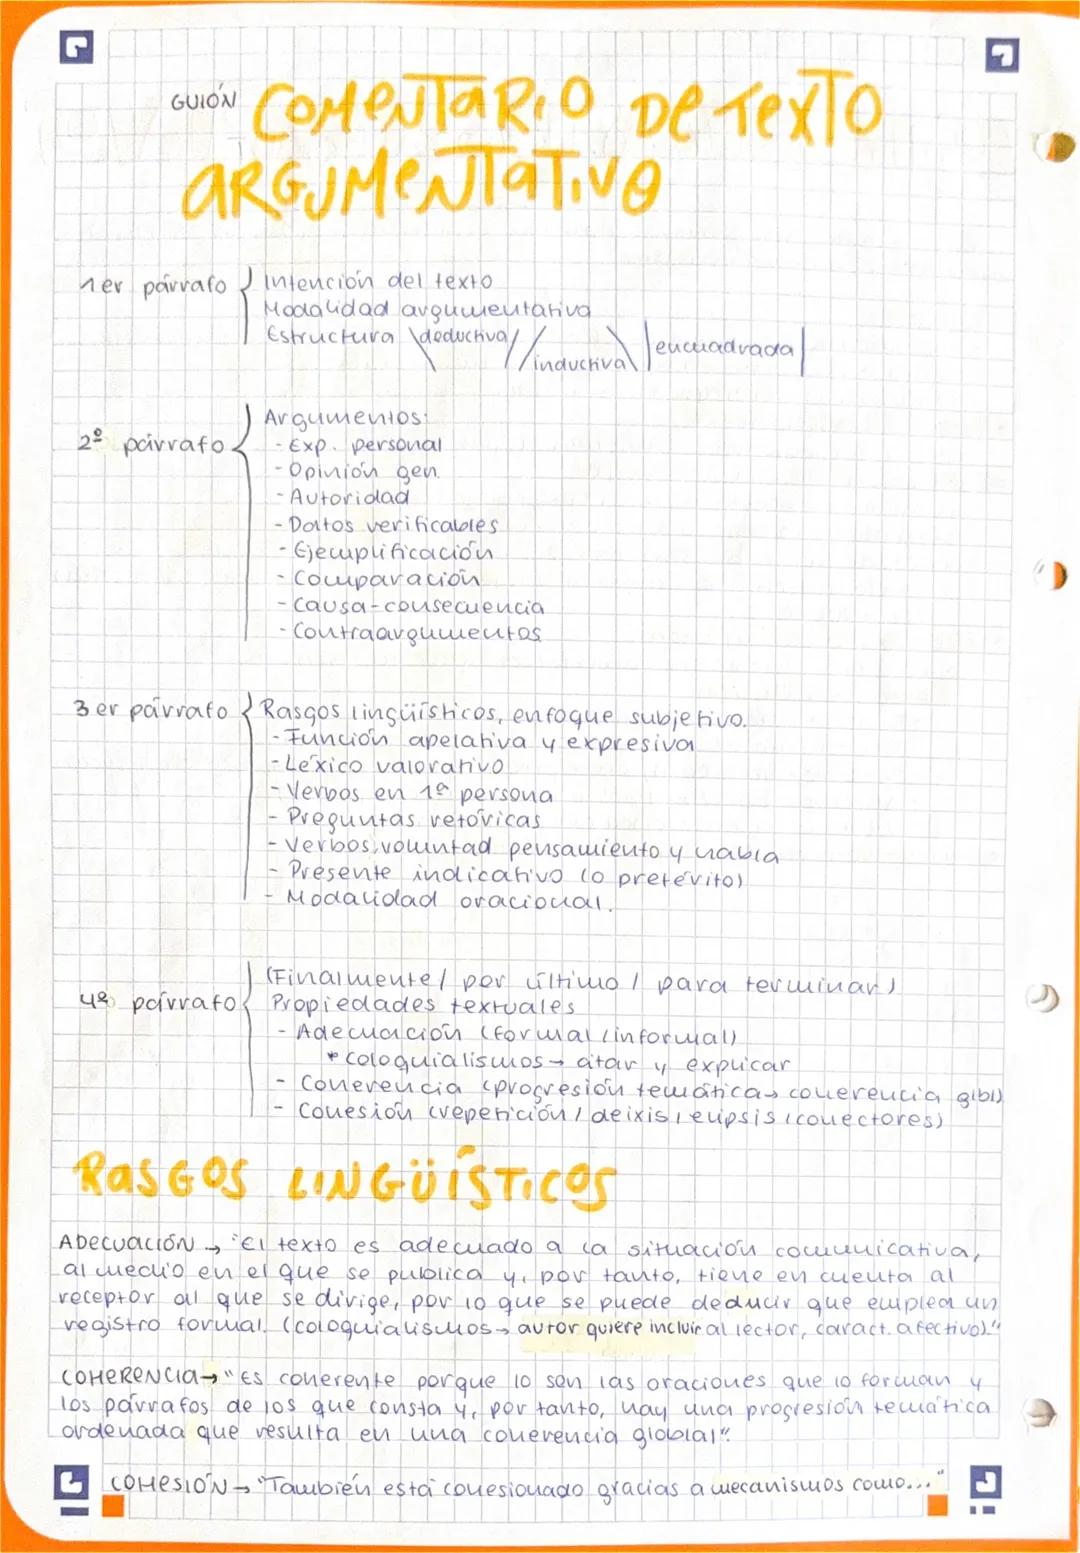 GUIÓN COMENTARIO DE TEXTO
ARGUMENTATIVO
1er párrafo { Intención del texto
Modalidad argumentativa
Estructura \deductiva/ /inductiva\ |encuadrada|
2º párrafo { Argumentos:
- Exp. personal
- Opinión gen.
- Autoridad
- Datos verificables
- Ejemplificación
- Comparación
- Causa-consecuencia
- Contraargumentos
3er párrafo { Rasgos lingüísticos, enfoque subjetivo.
- Función apelativa y expresiva
- Léxico valorativo
- Verbos en 1ª persona
- Preguntas retóricas
- Verbos, voluntad pensamiento y habla
- Presente indicativo (o pretérito)
- Modalidad oracional.
4º párrafo { (Finalmente / por último / para terminar)
Propiedades textuales
- Adecuación (formal/informal)
* Coloquialismos → citar y explicar
- Coherencia (progresión temática → coherencia glbl)
- Cohesión (repetición / deixis / elipsis / conectores)
RASGOS LINGÜÍSTICOS
ADECUACIÓN → "El texto es adecuado a la situación comunicativa,
al medio en el que se publica y, por tanto, tiene en cuenta al
receptor al que se dirige, por lo que se puede deducir que emplea un
registro formal. (coloquialismos → autor quiere incluir al lector, caract. afectivo)."
COHERENCIA → "Es coherente porque lo son las oraciones que lo forman y
los párrafos de los que consta y, por tanto, hay una progresión temática
ordenada que resulta en una coherencia global".
COHESIÓN → "También está cohesionado gracias a mecanismos como..."